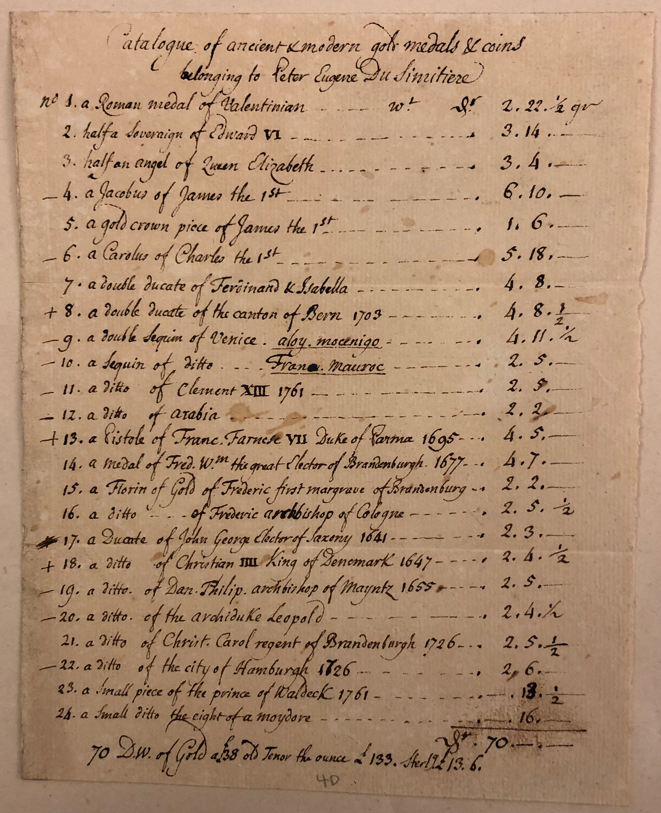 Catalogue of ancient & modern gold medals & coins
belonging to Peter Eugene Du Simitiere
no 1. a Roman medal of Valentinian ---- wt 2. 22. 1/2 gr
2. half a Soveraign of Edward VI ---- 3. 14. —
3. half an angel of Queen Elizabeth ---- 3. 4. —
— 4. a Jacobus of James the 1st ---- 6. 10. —
5. a gold crown piece of James the 1st ---- 1. 6. —
— 6. a Carolus of Charles the 1st ---- 5. 18. —
7. a double ducate of Ferdinand & Isabella ---- 4. 8. —
+ 8. a double ducate of the canton of Bern 1703 ---- 4. 8. 1/2
— 9. a double Sequin of Venice. aloy. mocenigo ---- 4. 11. 1/2
— 10. a Sequin of ditto ---- Franc. mauroc ---- 2. 5. —
— 11. a ditto of Clement XIII 1761 ---- 2. 5. —
— 12. a ditto of arabia ---- 2. 2. —
+ 13. a Pistole of Franc. Farnese VII Duke of Parma 1695 -- 4. 5. —
14. a medal of Fred. Wm the great Elector of Brandenburgh. 1677 -- 4. 7. —
15. a Florin of Gold of Frederic first margrave of Brandenburg -- 2. 2. —
16. a ditto ---- of Frederic archbishop of Cologne ---- 2. 5. 1/2
17. a Ducate of John George Elector of Saxony 1641 ---- 2. 3. —
+ 18. a ditto of Christian IIII King of Denemark 1647 ---- 2. 4. 1/2
— 19. a ditto. of Dan. Philip. archbishop of Mayntz 1655 ---- 2. 5. —
— 20. a ditto. of the archiduke Leopold ---- 2. 4. 1/2
21. a ditto of Christ. Carol regent of Brandenburgh 1726 --- 2. 5. 1/2
— 22. a ditto of the city of Hamburgh 1726 ---- 2. 6. —
23. a Small piece of the prince of Waldeck 1761 ---- 1/2
24. a Small ditto the eight of a moydore ---- 16. —
70. —
70 D.W. of Gold a £38 old Tenor the ounce £ 133. Sterl. £ 13. 6.
40